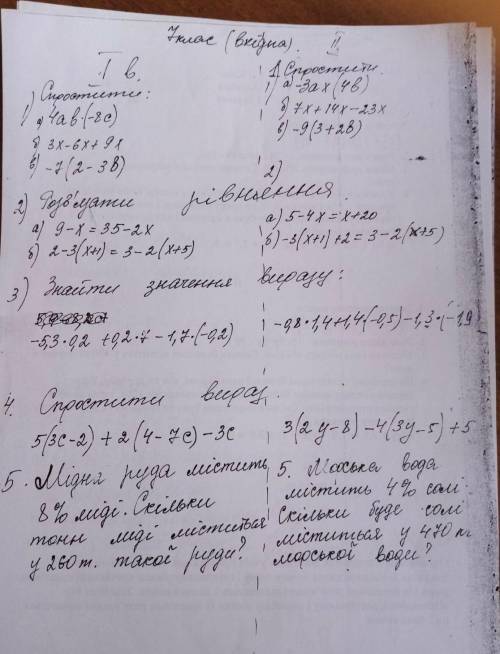 7клас (вхідна). II
I в.
1) Спростити:
а) 4ав·(-8с)
б) 3х-6х+9х
в) -7(2-3в)
1) Спростити.
а) -3ах(4в)
б) 7х+14х-23х
в) -9(3+2в)
2) Розв'язати рівняння
а) 9-х=35-2х
б) 2-3(х+1)=3-2(х+5)
2)
а) 5-4х=х+20
б) -3(х+1)+2=3-2(х+5)
3) Знайти значення виразу:
-5,3·0,2+0,2·7-1,7·(-0,2)
-0,8·1,4+1,4(-0,5)-1,3·(-1,9
4. Спростити вираз.
5(3с-2)+2(4-7с)-3с
3(2у-8)-4(3у-5)+5
5. Мідня руда містить
8% міді. Скільки
тонн міді міститься
у 260т. такої руди?
5. Морська вода
містить 4% солі
Скільки буде солі
міститься у 470 кг
морської води?